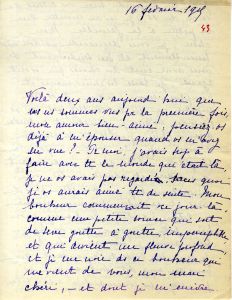 16 février 19
43
Voilà deux ans aujourd'hui que
nous nous sommes vus pr la première fois,
mon amour bien-aimé, pensiez-vs
déjà à m'épouser quand vs m'avez
vu ? - Et moi, j'avais trop à
faire avec tt le monde qui était là,
je ne vs avais pas regardé, sans quoi
je vs aurais aimé tt de suite. Mon
bonheur commençait ce jour-là
comme une petite source qui sort
de terre goutte à goutte imperceptible
et qui devient un fleuve profond,
et je me noie de ce bonheur qui
me vient de vous, mon mari
chéri, - et dont je m'enivre